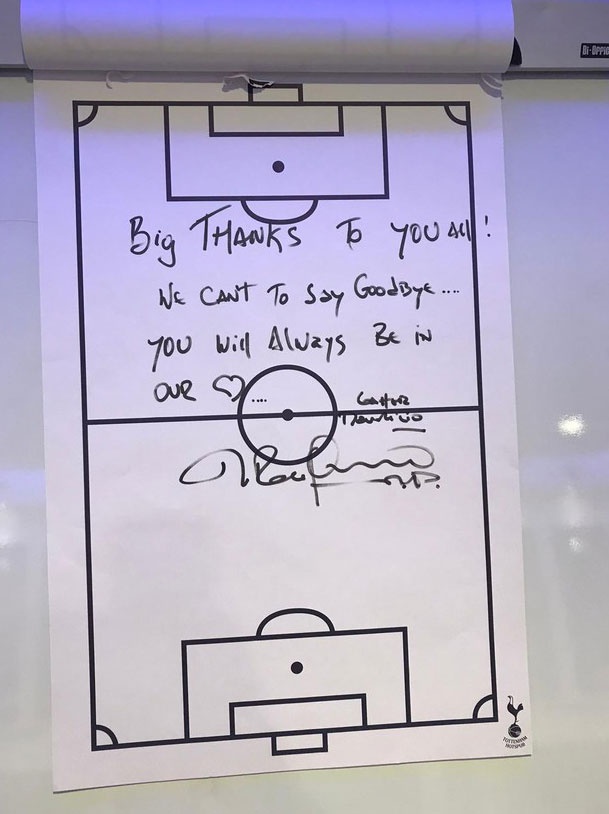 Di-Oppio
Big THANKS To YOU All!
WE CANT To Say GoodBye....
YOU Will Always BE iN
OUR ♡....
TOTTENHAM
HOTSPUR